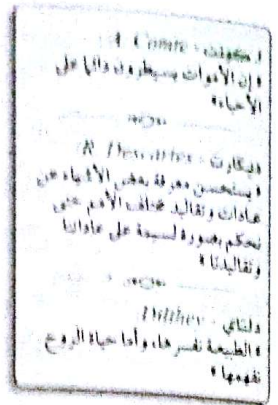 أ. كونت - A Comte
« إن الأموات يسيطرون دائما على
الأحياء»
ديكارت - R. Descartes
« يستحسن معرفة بعض الأشياء عن
عادات وتقاليد مختلف الأمم حتى
نحكم بصورة سليمة على عاداتنا
وتقاليدنا »
دلتاي - Dilthey
« الطبيعة نفسرها، وأما حياة الروح
نفهمها »